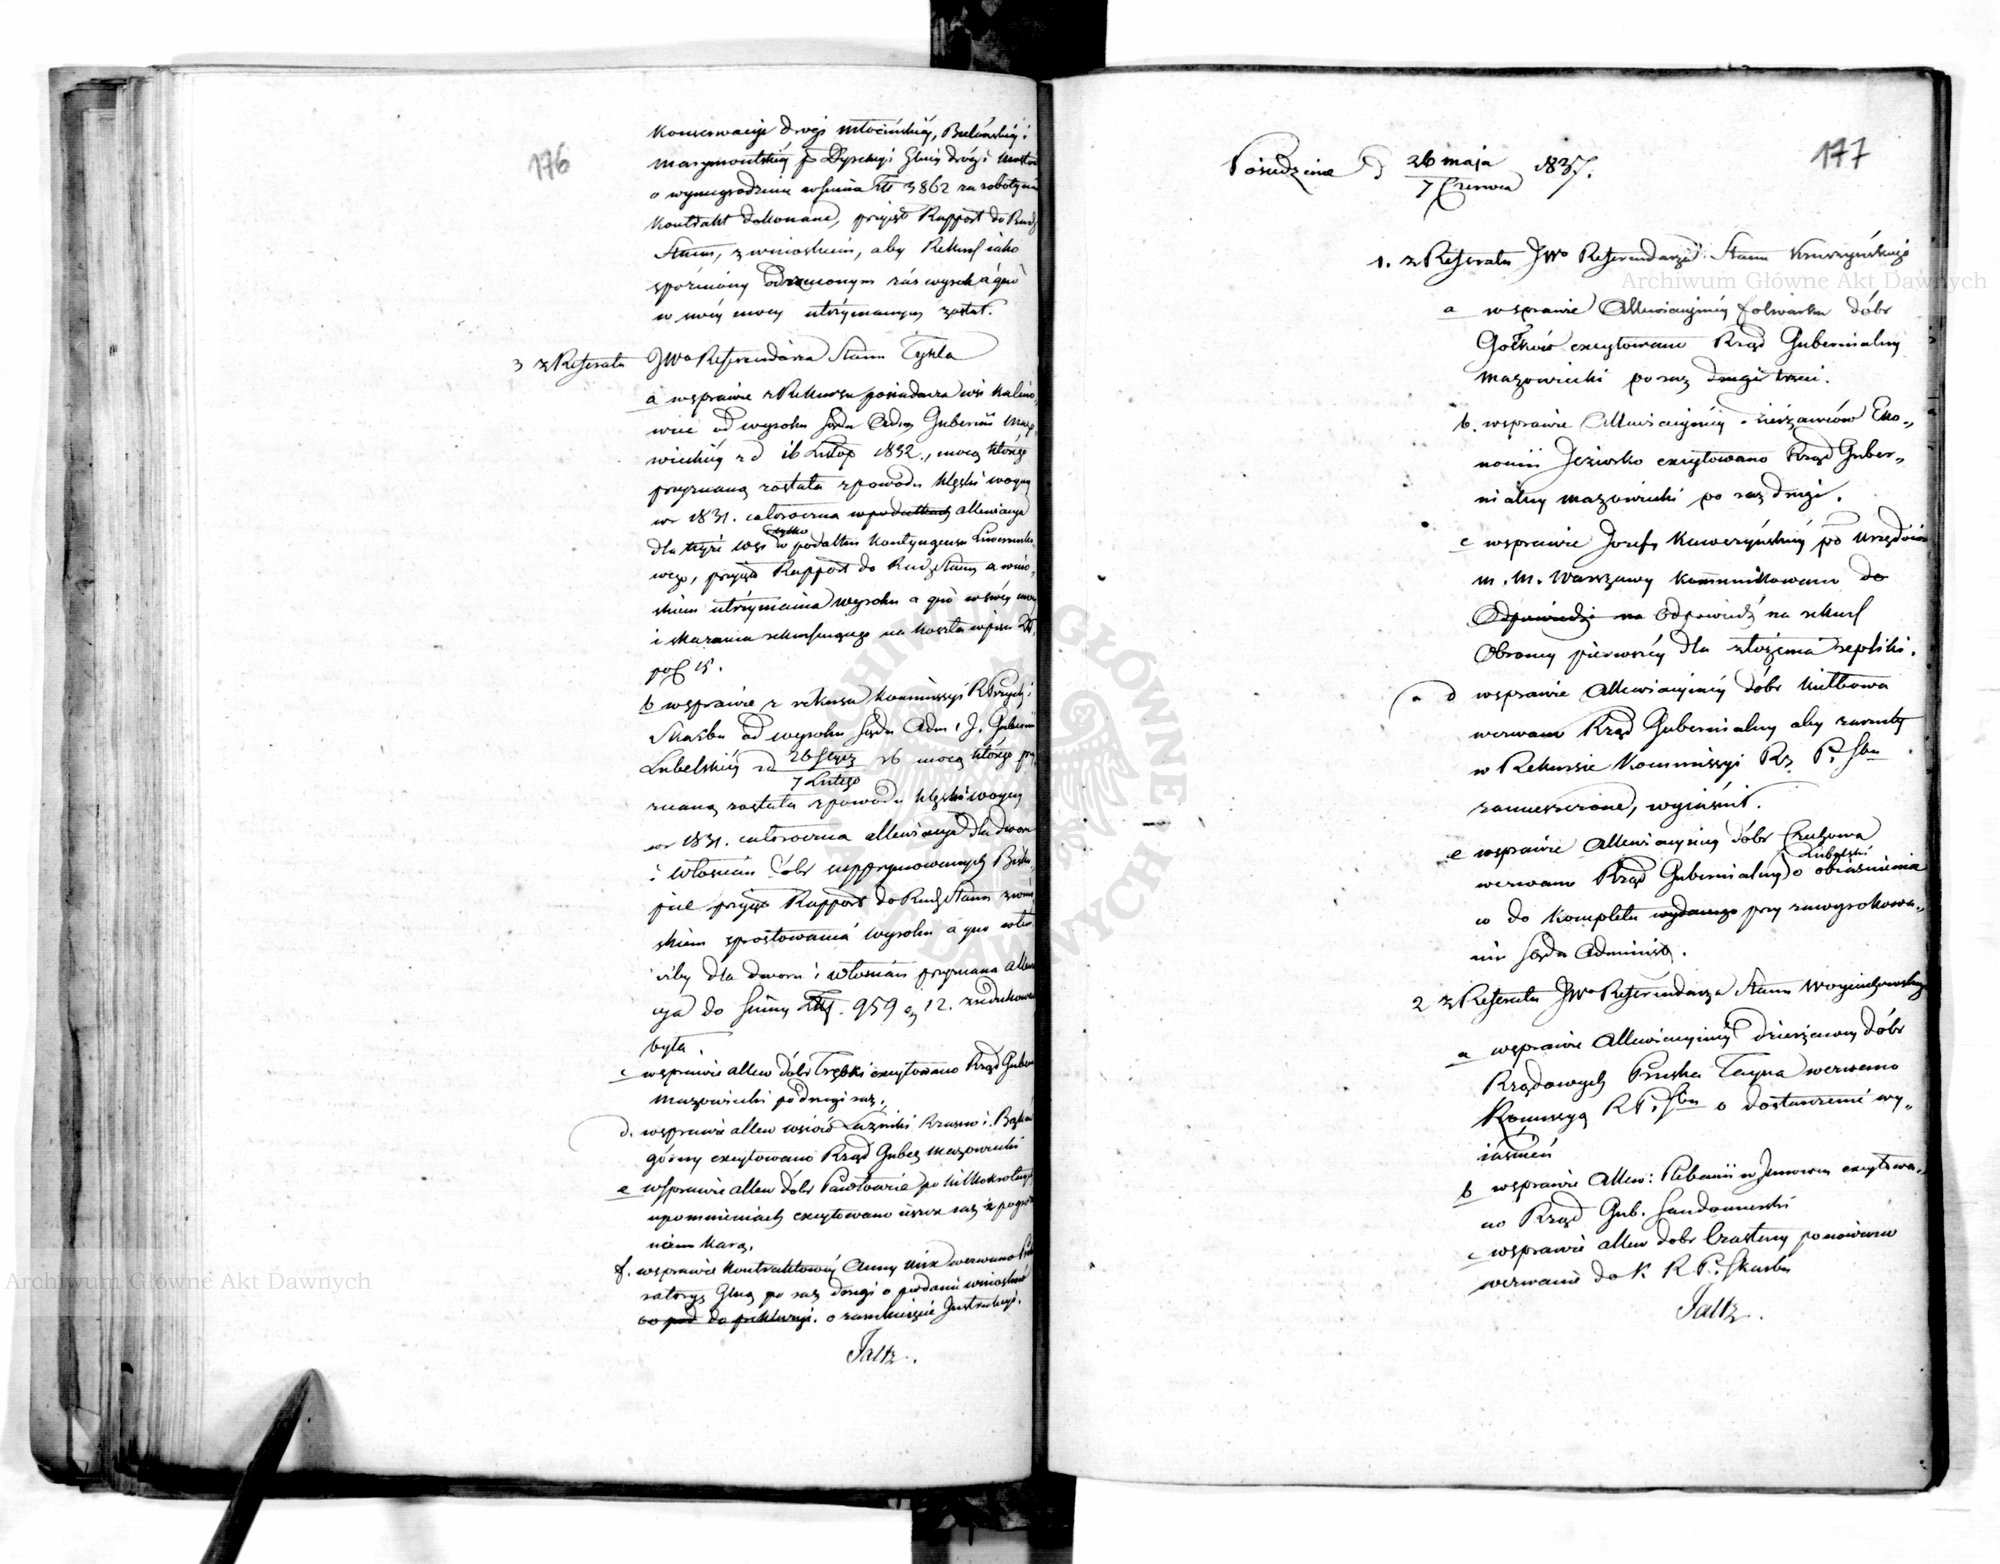 176
konserwacyi drogi młocińskiéj, Bielańskiéj i
marymontskiéj p Dyrekcyi Głnéj dróg i mostów
o wynagrodzenie w summie Złt 3862 za roboty nad
kontrakt dokonane, przyjęto Rapport do Rady
Stanu, z wnioskiem, aby Rekurs jako
spóźniony odrzuconym zaś wyrok a quo
w swéj mocy utrzymanym został.
3 z Referatu JWo Referendarza Stanu Tykla
a w sprawie z Rekursu posiadacza wsi Kalino-
wiec od wyroku Sądu Adm Gubernii Mazo-
wieckiéj z d 16 Listop 1832., mocą którego
przyznaną została z powodu klęski wojny
w r 1831. całoroczna w podatkach allewiacya
dla tejże wsi tylko w podatku kontyngensu liwerunko-
wego, przyjęto Rapport do Rady Stanu z wnio-
skiem utrzymania wyroku a quo w swéj mocy
i skazania rekursującego na koszta wpisu Złt
pol 15.
b w sprawie z rekursu Kommissyi R Przych i
Skarbu od wyroku Sądu Adm i J. Gubernii
Lubelskiéj z d 26 Stycz / 7 Lutego 36 mocą którego przy
znaną została z powodu klęski wojny
w r 1831. całoroczna allewiacya dla dworu
i włościan dóbr suprymowanych Bisku-
pie przyjęto Rapport do Rady Stanu z wnio
skiem sprostowania wyroku a quo
iżby dla dworu i włościan przyznana allewia
cya do summy Złt. 959 gr 12. zredukowana
była.
c w sprawie allew dóbr Trębki excytowano Rząd Gubern
Mazowiecki po drugi raz.
d. w sprawie allew wsiów Łaźniki Krusew i Bąków
górny excytowano Rząd Guber Mazowiecki
e w sprawie allew dóbr Pawłowice po kilkokrotnych
upomnieniach excytowano jeszcze raz z pogroże
niem kary.
f. w sprawie kontraktowéj Anny Mix wezwano Proku
ratoryę Głną po raz drugi o podanie wniosków
co pod do prekluzyi. o zamknięcie Instrukcyi.
Faltz.
177
Posiedzenie d 26 maja / 7 Czerwca 1837.
1. z Referatu JWo Referendarza Stanu Kruszyńskiego
a w sprawie Allewiacyjnéj folwarku dóbr
Gołków excytowano Rząd Gubernialny
Mazowiecki po raz drugi trzeci.
b. w sprawie Allewiacyjnéj dzierżawców Eko-
nomii Jeziorko excytowano Rząd Guber-
nialny Mazowiecki po raz drugi.
c w sprawie Józefy Kaweczyńskiéj po Urzędowi
M. M. Warszawy kommunikowano do
Odpowiedzi na odpowiedź na rekurs
Obrońcy pierwszéj dla złożenia repliki.
d w sprawie Allewiacyjnéj dóbr Kiełbowa
wezwano Rząd Gubernialny aby zarzuty
w Rekursie Kommissyi Rz. P. Sbu
zamieszczone, wyjaśnił.
e w sprawie Allewiacyjnéj dóbr Czułzowa
wezwano Rząd Gubernialny Lubelski o objaśnienia
co do kompletu wydanego przy zawyrokowa-
niu Sądu Administ.
2 z Referatu JWo Referendarza Stanu Woyciechowskiego
a w sprawie Allewiacyjnéj dzierżawcy dóbr
Rządowych Pruska Łęczna wezwano
Kommissyą R P. Sbu o dostarczenie wy-
jaśnień
b w sprawie Allew: Plebanii w Janowcu excytowa-
no Rząd Gub. Sandomierski
c w sprawie allew dóbr Crastawy ponowiono
wezwanie do K. R P. Skarbu
Faltz.
Archiwum Główne Akt Dawnych
Archiwum Główne Akt Dawnych
ARCHIWUM GŁÓWNE AKT DAWNYCH